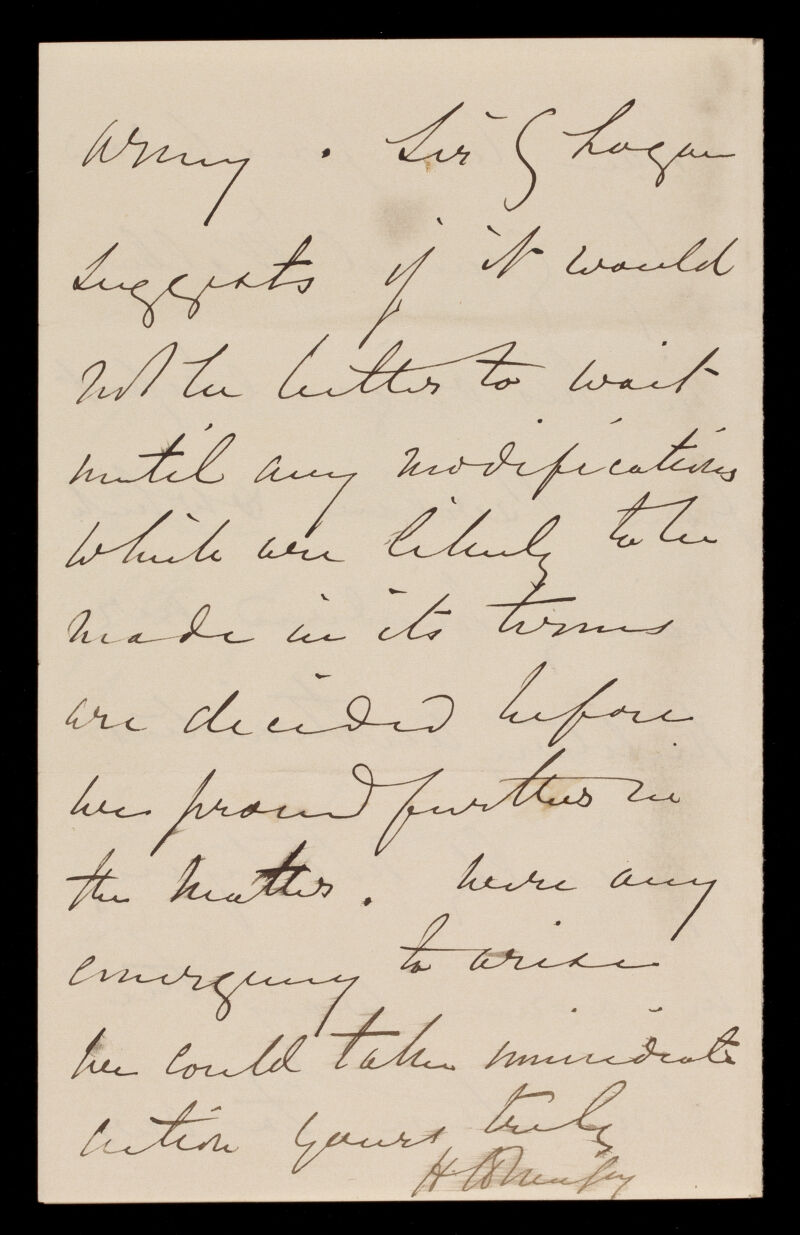 army. Sir G Logan
suggests if it would
not be better to wait
until any modifications
which are likely to be
made in its terms
are decided before
we proceed further in
the matter. were any
emergency to arise
we could take immediate
action yours truly
H